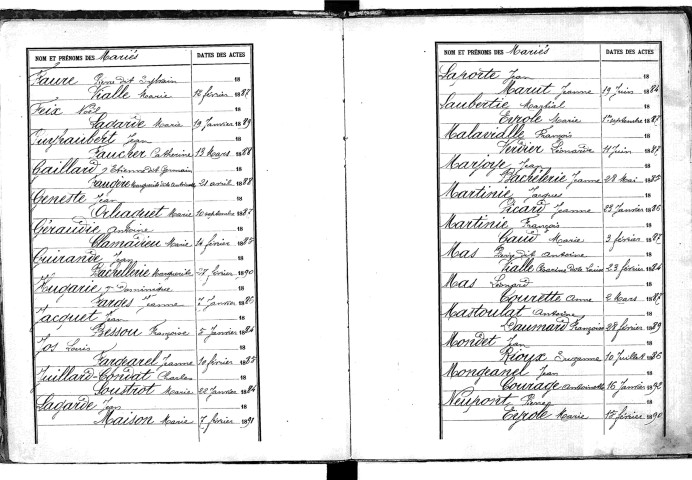 NOM ET PRÉNOMS DES Mariés DATES DES ACTES
Faure dit Sylvain 18
Vialle Marie 12 février 1887
Feix Noël 18
Lagarde Marie 19 Janvier 1889
Jean 18
Faucher Catherine 13 Mars 1886
Gaillard Etienne dit Germain 18
21 avril 1888
Geneste Jean 18
Orliaguet Marie 10 septembre 1887
Géraudie Antoine 18
Clamadieu Marie 14 février 1885
Guirande Jean 18
Bachellerie Marguerite 27 février 1890
Hugarie Dominique 18
Fardes Jeanne 7 Janvier 1886
Jacquet Jean 18
Bessou Françoise 5 Janvier 1886
Jos Louis 18
Fargarel Jeanne 10 février 1885
Juillard-Condat Charles 18
Soustrot Marie 22 Janvier 1884
Lagarde Jean 18
Maison Marie 7 février 1891
NOM ET PRÉNOMS DES Mariés DATES DES ACTES
Laporte Jean 18
Marut Jeanne 19 Juin 1884
Laubertie Martial 18
Eyrole Marie 1er septembre 1887
Malavialle François 18
Verdier Léonarde 11 Juin 1887
Marjoye Jean 18
Bachèlerie Jeanne 28 Mai 1885
Martinie Jacques 18
Picard Jeanne 23 Janvier 1886
Martinie François 18
Caud Marie 3 février 1887
Mas dit Antoine 18
Vialle 23 février 1886
Mas Léonard 18
Courette Anne 2 Mars 1887
Mastoulat Antoine 18
Daumard Françoise 28 février 1889
Mondet Jean 18
Rioux Suzanne 10 Juillet 1886
Mongeanel Jean 18
Courage Antoinette 16 Janvier 1892
Neupont 18
Eyrole Marie 15 février 1890